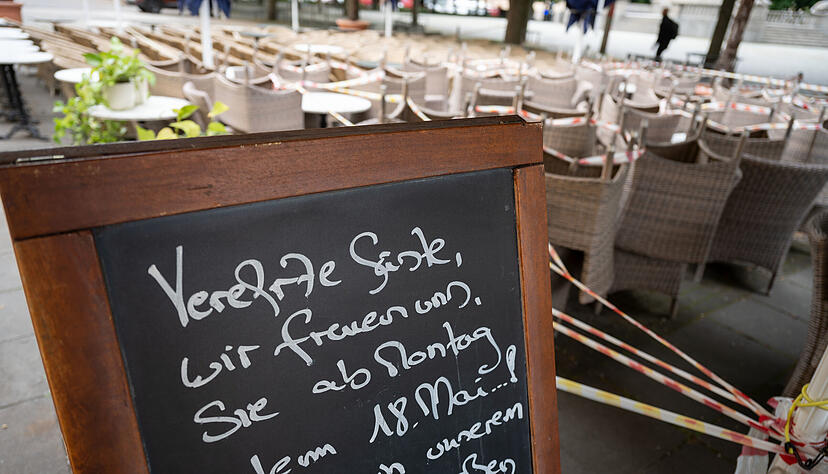 Verehrte Gäste,
wir freuen uns,
Sie ab Montag
dem 18. Mai...!
in unserem